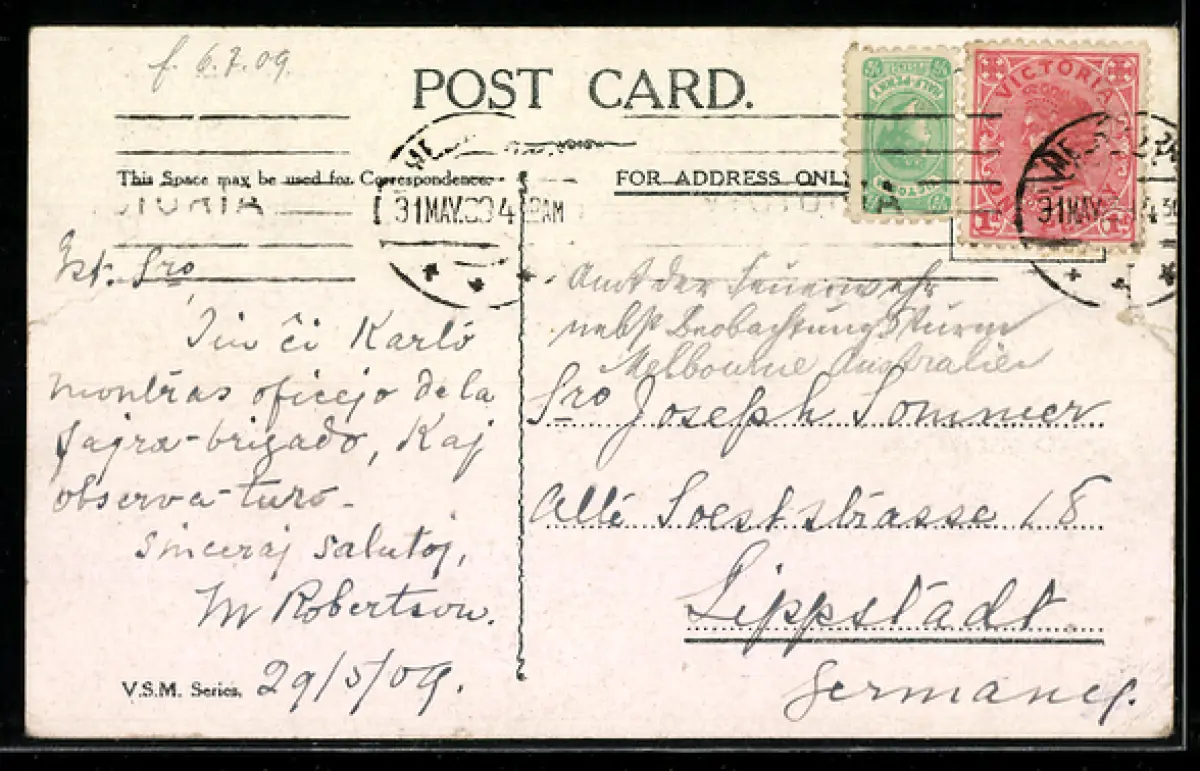 f. 6.7.09.
POST CARD.
HALFPENNY
VICTORIA
This Space may be used for Correspondence.
FOR ADDRESS ONLY
VICTORIA
31 MAY 09 4
31 MAY 4 30
Est. Sro
Tiu ĉi Karto
montras oficejo de la
fajra-brigado, Kaj
observa-turo-
Sinceraj salutoj,
M Robertson.
29/5/09.
V.S.M. Series.
Amt der Feuerwehr
nebst Beobachtungsturm
Melbourne Australien
Sro Joseph Sommer
Alte Soeststrasse 18
Lippstadt
Germany.